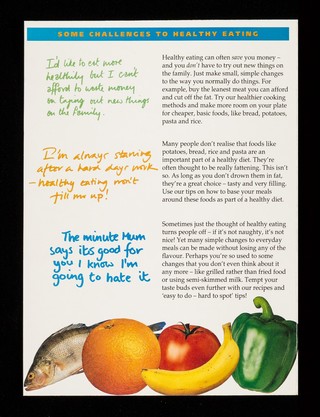 SOME CHALLENGES TO HEALTHY EATING
I'd like to eat more
healthily but I can't
afford to waste money
on trying out new things
on the family.
Healthy eating can often save you money –
and you don't have to try out new things on
the family. Just make small, simple changes
to the way you normally do things. For
example, buy the leanest meat you can afford
and cut off the fat. Try our healthier cooking
methods and make more room on your plate
for cheaper, basic foods, like bread, potatoes,
pasta and rice.
I'm always starving
after a hard days work
– healthy eating won't
fill me up!
Many people don't realise that foods like
potatoes, bread, rice and pasta are an
important part of a healthy diet. They're
often thought to be really fattening. This isn't
so. As long as you don't drown them in fat,
they're a great choice – tasty and very filling.
Use our tips on how to base your meals
around these foods as part of a healthy diet.
The minute Mum
says its good for
you I know I'm
going to hate it
Sometimes just the thought of healthy eating
turns people off – if it's not naughty, it's not
nice! Yet many simple changes to everyday
meals can be made without losing any of the
flavour. Perhaps you're so used to some
changes that you don't even think about it
any more – like grilled rather than fried food
or using semi-skimmed milk. Tempt your
taste buds even further with our recipes and
'easy to do – hard to spot' tips!